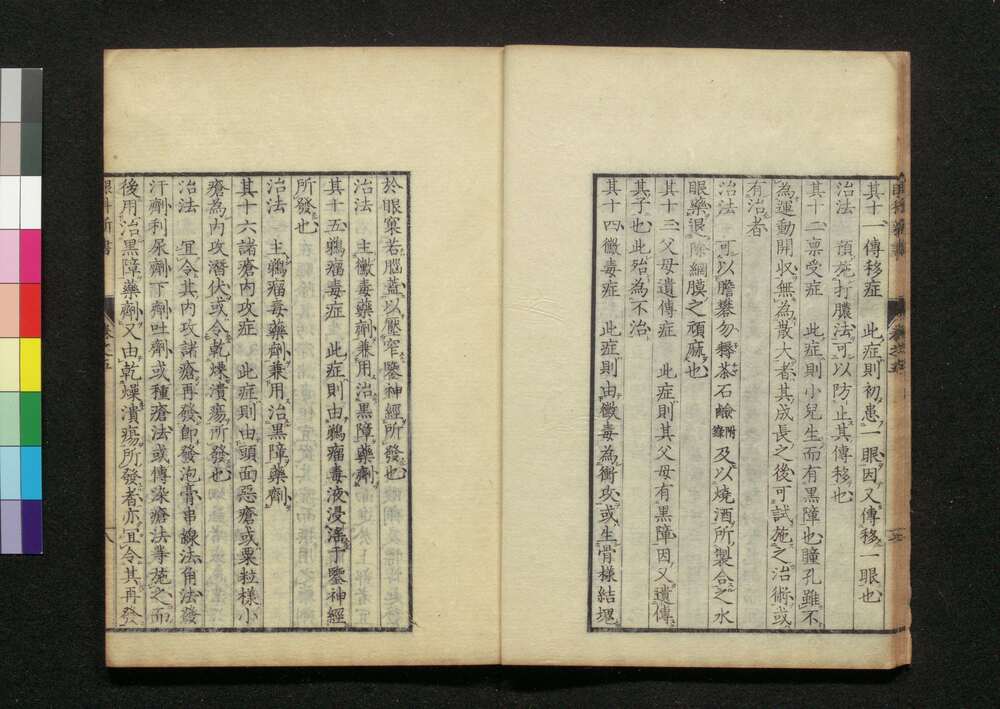 其十一傳移症　此症則初患一眼因又傳移一眼也
治法　預施打膿法可以防止其傳移也
其十二稟受症　此症則小兒生而有黒障也瞳孔雖不
為運動開收無為散大者其成長之後可試施之治術或
有治者
治法　可以膽礬勿釋萘石鹸附錄及以燒酒所製合之水
眼藥退除網膜之頑麻也
其十三父母遺傳症　此症則其父母有黒障因又遺傳
其子也此殆為不治
其十四黴毒症　此症則由黴毒為衝攻或生骨様結塊
於眼窠若腦蓋以壓窄鑒神經所發也
治法　主黴毒藥劑兼用治黒障藥劑
其十五鵝瘤毒症　此症則由鵝瘤毒液浸潘于鑒神經
所發也
治法　主鵝瘤毒藥劑兼用治黒障藥劑
其十六諸瘡内攻症　此症則由頭面惡瘡或粟粒様小
瘡為内攻潛伏或令乾燥潰瘍所發也
治法　宜令其内攻諸瘡再發卽發泡膏串線法角法發
汗劑利尿劑下劑吐劑或種瘡法或傳染瘡法等施之而
後用治黒障藥劑又由乾燥潰瘍所發者亦宜令其再發
眼科新書
卷之五
八